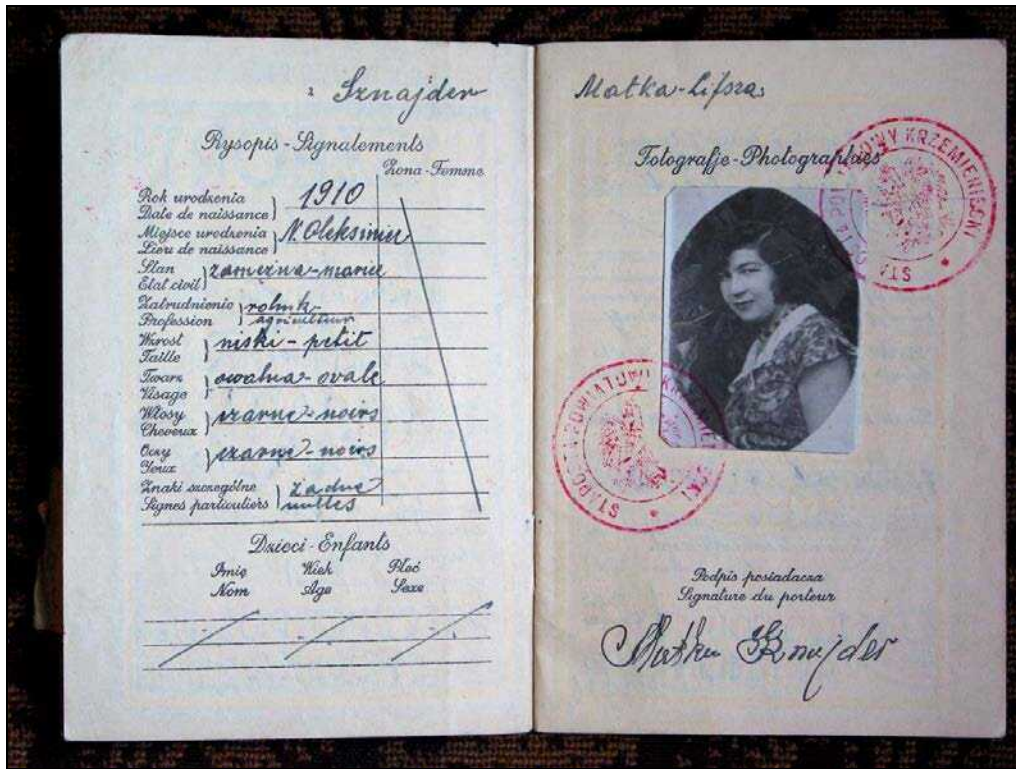 Sznajder
Rysopis - Signalements
Żona - Femme
Rok urodzenia
Date de naissance
1910
Miejsce urodzenia
Lieu de naissance
N. Oleksiniec
Stan
Etat civil
zamężna - mariée
Zatrudnienie
Profession
rolnik
agriculteur
Wzrost
Taille
niski - petit
Twarz
Visage
owalna - ovale
Włosy
Cheveux
czarne - noirs
Oczy
Yeux
czarne - noirs
Znaki szczególne
Signes particuliers
żadne
nulles
Dzieci - Enfants
Imię Wiek Płeć
Nom Age Sexe
Matka-Lifsza
Fotografje - Photographies
STAROSTA POWIATOWY KRZEMIENIECKI
STAROSTA POWIATOWY KRZEMIENIECKI
Podpis posiadacza
Signature du porteur
Matka Sznajder